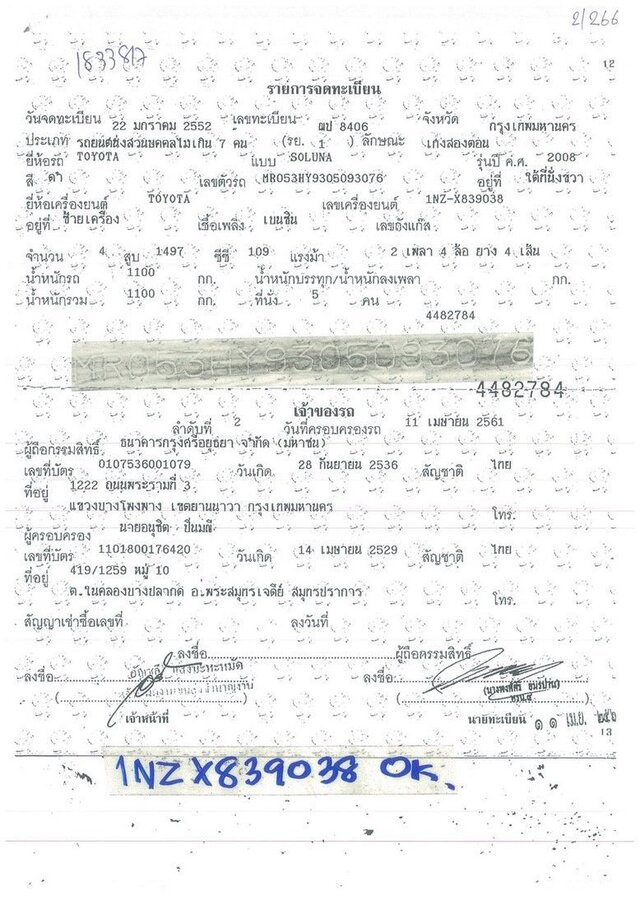 2/266
1833817
12
รายการจดทะเบียน
วันจดทะเบียน 22 มกราคม 2552 เลขทะเบียน ฌป 8406 จังหวัด กรุงเทพมหานคร
ประเภท รถยนต์นั่งส่วนบุคคลไม่เกิน 7 คน (รย. 1 ) ลักษณะ เก๋งสองตอน
ยี่ห้อรถ TOYOTA แบบ SOLUNA รุ่นปี ค.ศ. 2008
สี ดำ เลขตัวรถ MR053HY9305093076 อยู่ที่ ใต้ที่นั่งขวา
ยี่ห้อเครื่องยนต์ TOYOTA เลขเครื่องยนต์ 1NZ-X839038
อยู่ที่ ซ้ายเครื่อง เชื้อเพลิง เบนซิน เลขถังแก๊ส
จำนวน 4 สูบ 1497 ซีซี 109 แรงม้า 2 เพลา 4 ล้อ ยาง 4 เส้น
น้ำหนักรถ 1100 กก. น้ำหนักบรรทุก/น้ำหนักลงเพลา กก.
น้ำหนักรวม 1100 กก. ที่นั่ง 5 คน
4482784
MR053HY9305093076
4482784
เจ้าของรถ
ลำดับที่ 2 วันที่ครอบครองรถ 11 เมษายน 2561
ผู้ถือกรรมสิทธิ์ ธนาคารกรุงศรีอยุธยา จำกัด (มหาชน)
เลขที่บัตร 0107536001079 วันเกิด 28 กันยายน 2536 สัญชาติ ไทย
ที่อยู่ 1222 ถนนพระรามที่ 3
แขวงบางโพงพาง เขตยานนาวา กรุงเทพมหานคร โทร.
ผู้ครอบครอง นายอนุชิต ปั้นมลี
เลขที่บัตร 1101800176420 วันเกิด 14 เมษายน 2529 สัญชาติ ไทย
ที่อยู่ 419/1259 หมู่ 10
ต.ในคลองบางปลากด อ.พระสมุทรเจดีย์ สมุทรปราการ โทร.
สัญญาเช่าซื้อเลขที่ ลงวันที่
ลงชื่อ ผู้ถือกรรมสิทธิ์
ลงชื่อ ลงชื่อ
เจ้าหน้าที่ นายทะเบียน ๑๑ เม.ย.
13
1NZ X839038 OK.